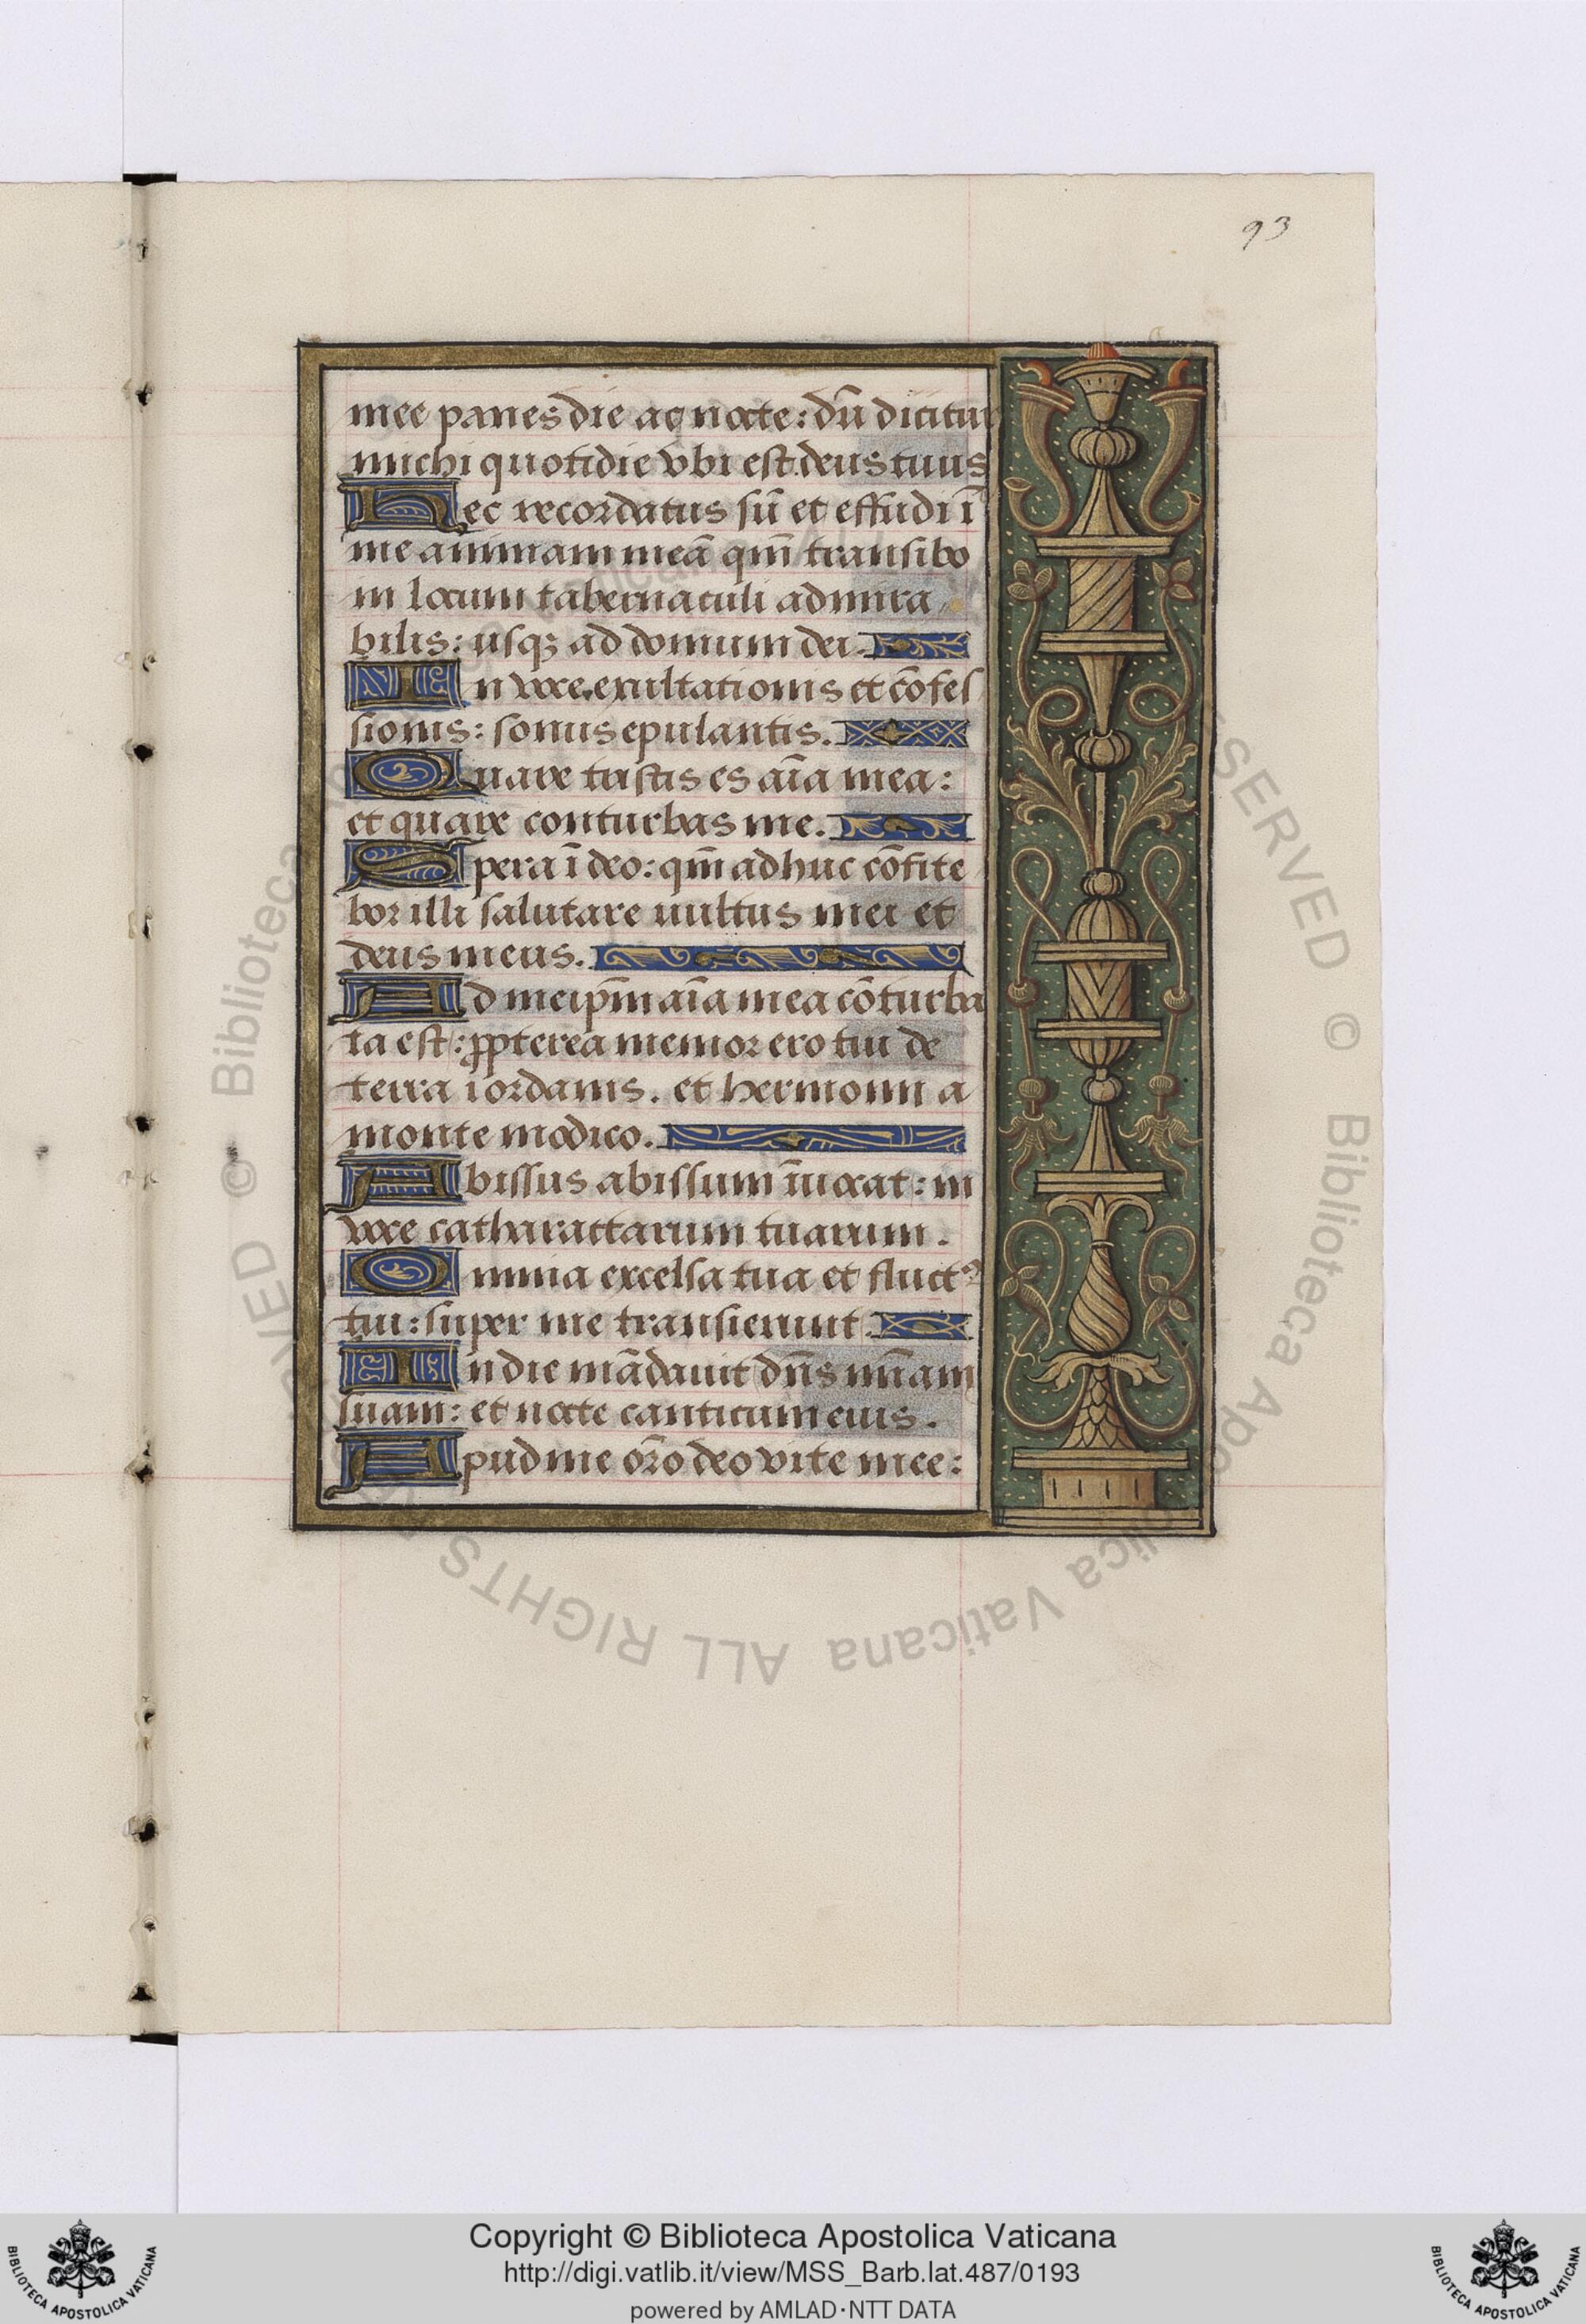 93
mee panes die ac nocte: dū dicitur
michi quotidie vbi est deus tuus
Hec recordatus sū et effudi ī
me animam meā qm̄ transibo
in locum tabernaculi admira
bilis: usqꝫ ad domum dei.
In voce exultationis et cōfes
sionis: sonus epulantis.
Quare tristis es aīa mea:
et quare conturbas me.
Spera ī deo: qm̄ adhuc cōfite
bor illi salutare uultus mei et
deus meus.
Ad meip̄m aīa mea cōturba
ta est: ꝓpterea memor ero tui de
terra iordanis. et hermonii a
monte modico.
Abissus abissum īuocat: in
voce catharactarum tuarum.
Omnia excelsa tua et fluctꝰ
tui: super me transierunt.
In die mādauit dn̄s mīam
suam: et nocte canticum eius.
Apud me or̄o deo vite mee:
© Biblioteca Apostolica Vaticana ALL RIGHTS RESERVED
Copyright © Biblioteca Apostolica Vaticana
http://digi.vatlib.it/view/MSS_Barb.lat.487/0193
powered by AMLAD·NTT DATA
BIBLIOTECA APOSTOLICA VATICANA
BIBLIOTECA APOSTOLICA VATICANA